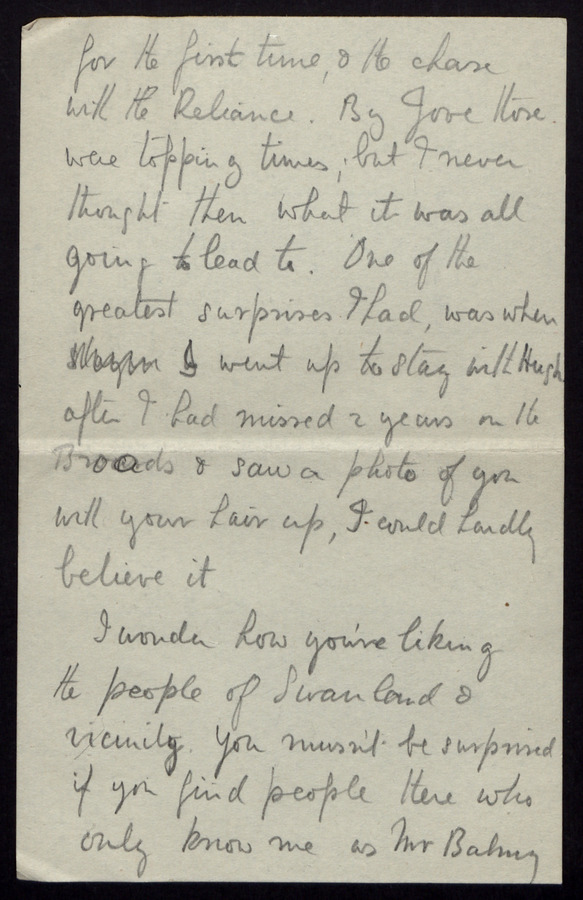 for the first time, & the chase
with the Reliance. By Jove those
were topping times; but I never
thought then what it was all
going to lead to. One of the
greatest surprises I had, was when
I went up to stay with Hugh
after I had missed 2 years on the
Broads & saw a photo of you
with your hair up, I could hardly
believe it
I wonder how you're liking
the people of Swanland &
vicinity. You mussn't be surprised
if you find people there who
only know me as Mr Balmy